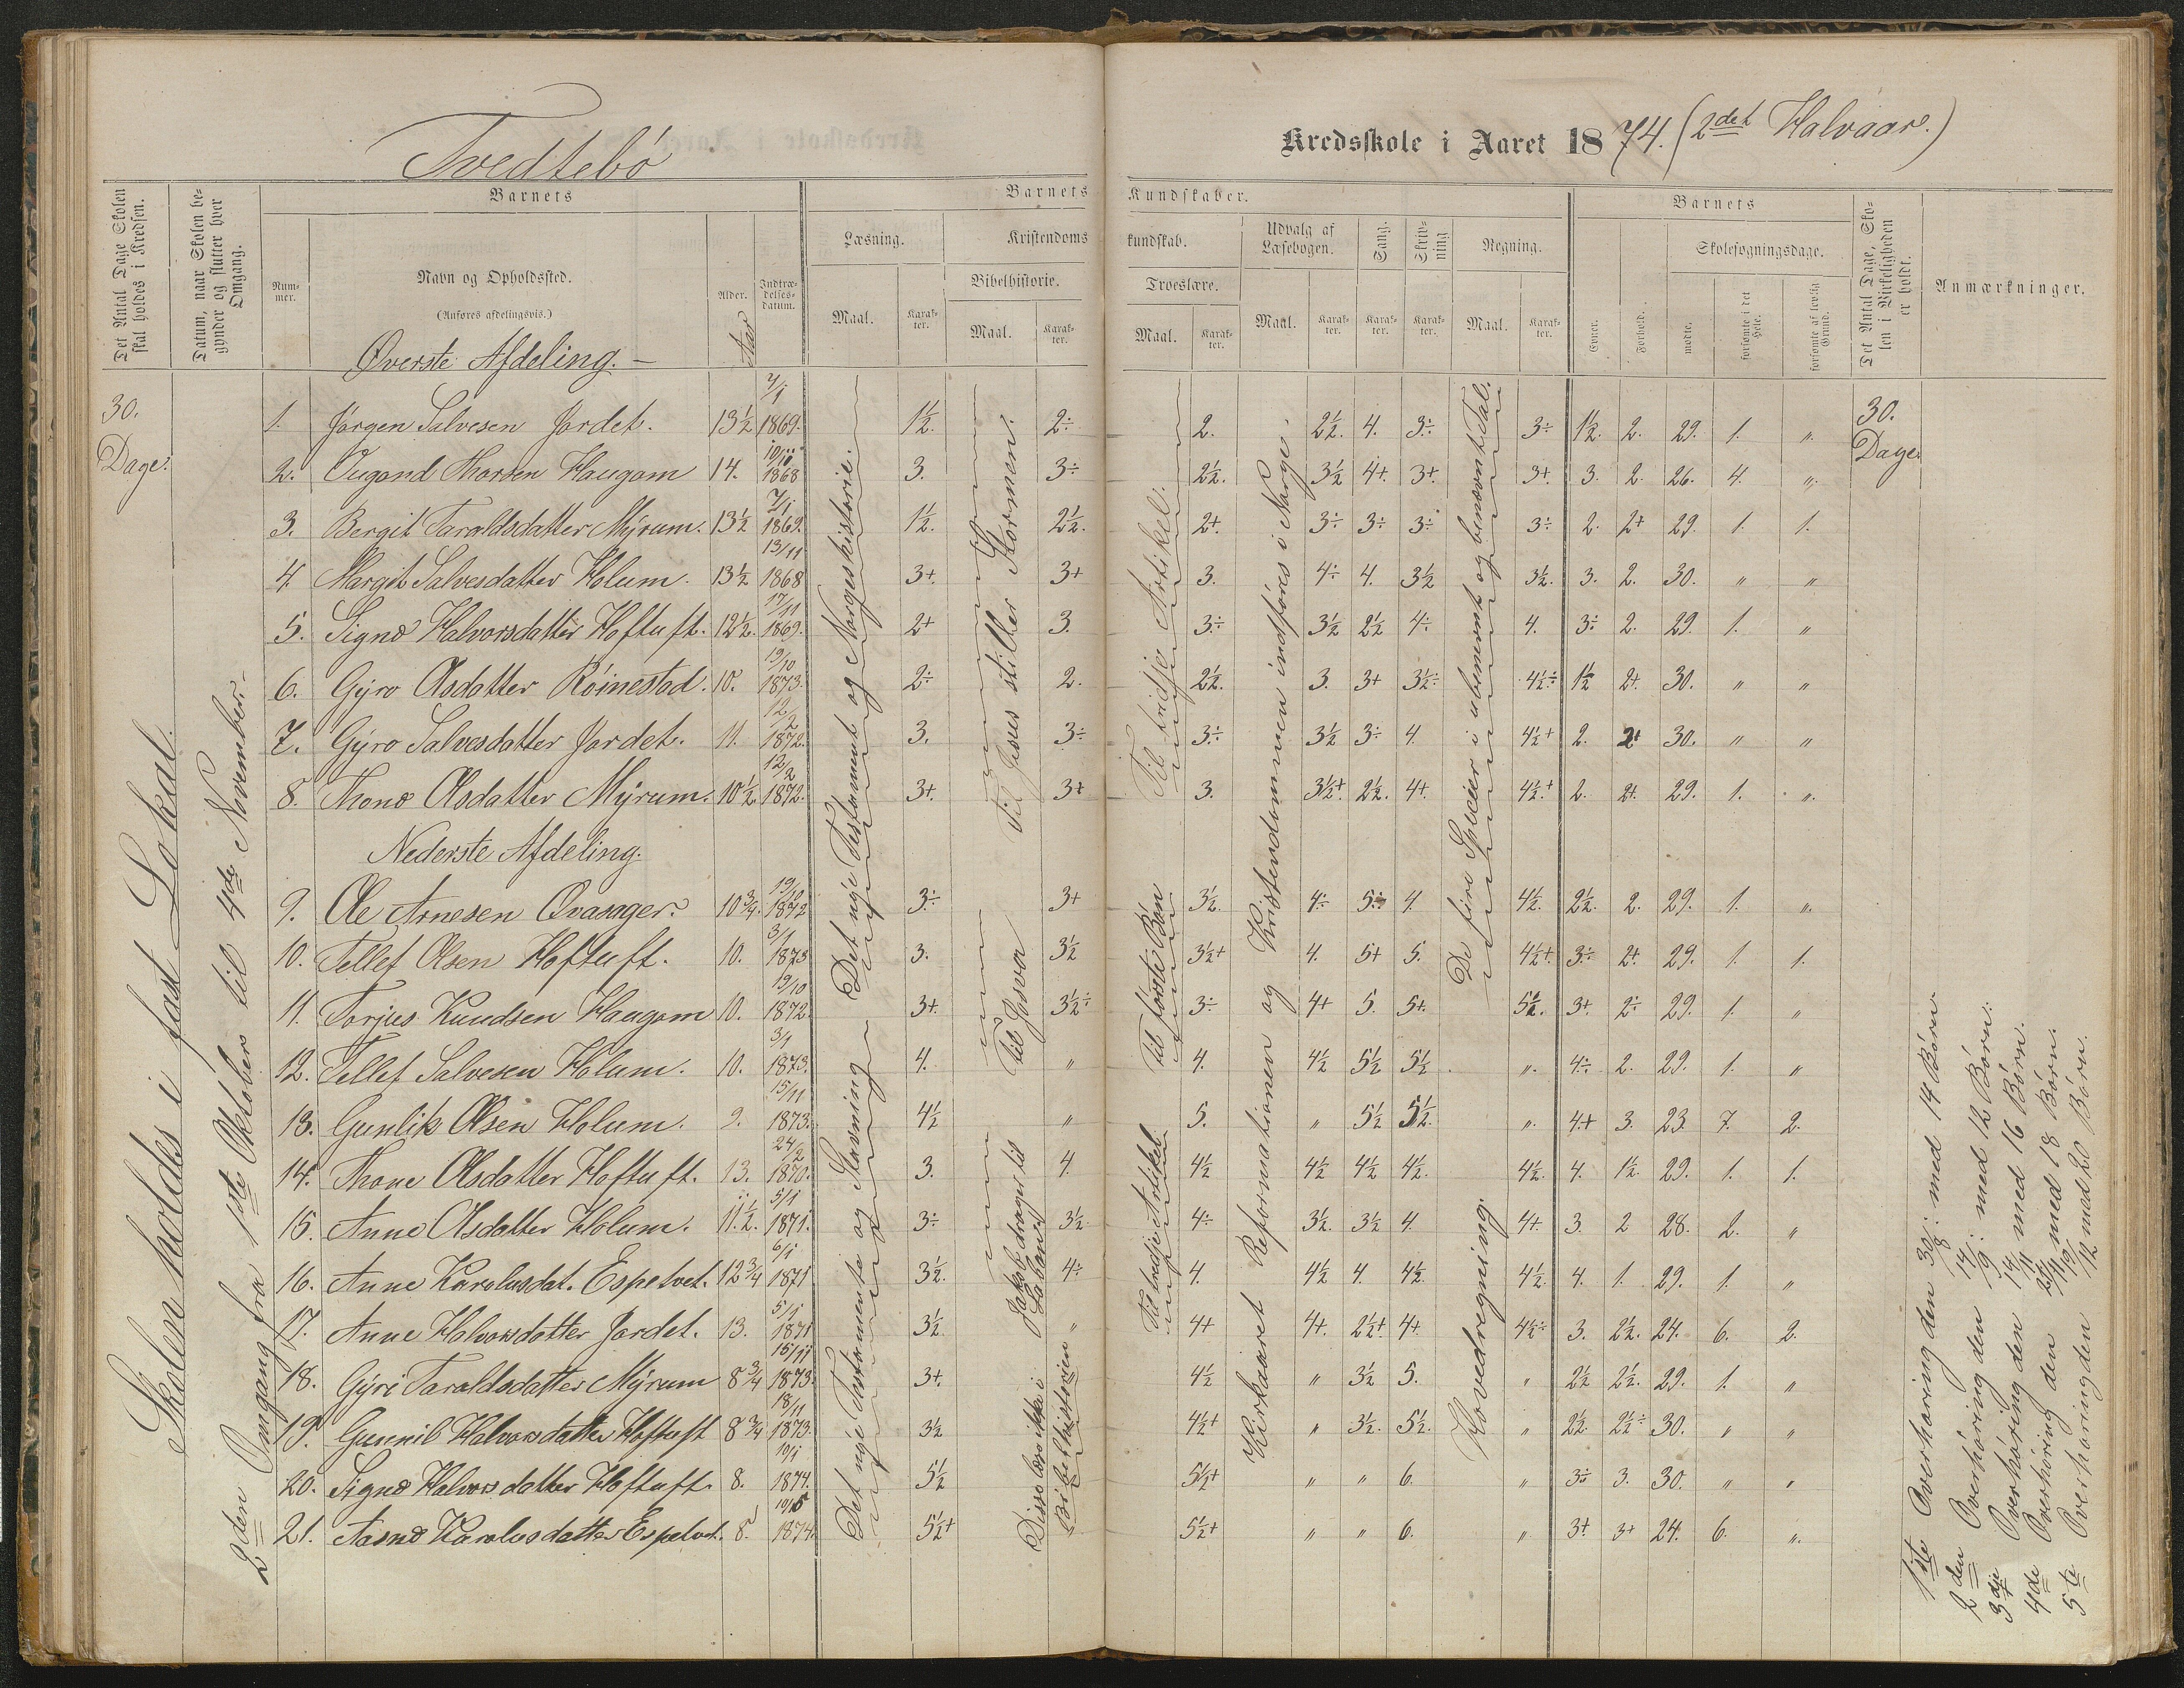 Tvedtebø
Kredsskole i Aaret 1874. (2det Halvaar.)
Det Antal Dage Skolen skal holdes i Kredsen.
Datum, naar Skolen begynder og slutter hver Omgang.
Barnets
Nummer.
Navn og Opholdssted.
(Anføres afdelingsvis.)
Alder.
Aar
Indtrædelses-datum.
Barnets Kundskaber.
Læsning.
Maal.
Karakter.
Kristendomskundskab.
Bibelhistorie.
Maal.
Karakter.
Troeslære.
Maal.
Karakter.
Udvalg af Læsebogen.
Maal.
Karakter.
Sang.
Karakter.
Skrivning
Karakter.
Regning.
Maal.
Karakter.
Barnets
Evner.
Forhold.
Skolesøgningsdage.
mødte.
forsømte i det Hele.
forsømte af lovlig Grund.
Det Antal Dage, Skolen i Virkeligheden er holdt.
Anmærkninger.
30. Dage.
Skolen holdes i fast Lokal.
2den Omgang fra 1ste Oktober til 4de November.
Øverste Afdeling.
1. Jørgen Salvesen Jordet. 13½ 7/1 1869. 1½. 2÷ 2. 2½. 4. 3÷ 3÷ 1½. 2. 29. 1. "
2. Ougond Thorsen Haugom 14. 10/11 1868 3. 3÷ 2½. 3½ 4+. 3+. 3+. 3. 2. 26. 4. "
3. Bergit Taraldsdatter Myrum. 13½ 7/1 1869. 1½. 2½. 2+. 3÷ 3÷ 3÷ 3÷ 2. 2+ 29. 1. 1.
4. Margit Salvesdatter Holum. 13½ 13/11 1868 3+. 3+ 3. 4÷ 4. 3½ 3½. 3. 2. 30. " "
5. Signe Halvorsdatter Hoftuft. 12½. 17/11 1869. 2+ 3. 3÷ 3½ 2½ 4÷ 4. 3÷ 2. 29. 1. "
6. Gyro Olsdatter Røinestad. 10. 19/10 1873. 2÷ 2. 2½. 3. 3+ 3½÷ 4½÷ 1½ 2+. 30. " "
7. Gyro Salvesdatter Jordet. 11. 12/2 1872. 3. 3÷ 3÷ 3½ 3÷ 4. 4½+ 2. 2+ 30. " "
8. Thone Olsdatter Myrum. 10½. 12/2 1872. 3+. 3+ 3. 3½+. 2½. 4+. 4½+ 2. 2+. 29. 1. "
Nederste Afdeling.
9. Ole Arnesen Qvasager. 10¾. 19/10 1872 3÷ 3+ 3½. 4÷ 5÷ 4. 4½. 2½. 2. 29. 1. "
10. Tellef Olsen Hoftuft. 10. 3/1 1873 3. 3½ 3½+ 4. 5+ 5. 4½+. 3÷ 2+. 29. 1. 1.
11. Torjus Knudsen Haugom 10. 19/10 1872. 3+. 3½÷ 3÷ 4+ 5. 5+. 5½. 3+. 2÷ 29. 1. "
12. Tellef Salvesen Holum. 10. 3/1 1873. 4. " 4. 4½ 5½ 5½ " 4÷ 2. 29. 1. "
13. Gunlik Olsen Holum. 9. 15/11 1873. 4½ " 5. " 5½ 5½. " 4+ 3. 23. 7. 2.
14. Thone Olsdatter Hoftuft. 13. 24/2 1870. 3. 4. 4½ 4½ 4½ 4½. 4½. 4. 1½. 29. 1. 1.
15. Anne Olsdatter Holum. 11½. 5/1 1871. 3÷ 3½. 4÷ 3½. 3½ 4. 4+. 3. 2 28. 2. "
16. Anne Karolusdat. Espelvet. 12¾ 6/1 1871 3½. 4÷ 4. 4½ 4. 4½. 4½. 4. 1. 29. 1. "
17. Anne Halvorsdatter Jordet. 13. 5/1 1871 3½. " 4+ 4+. 2½+. 4+ 4½÷ 3. 2½. 24. 6. 2.
18. Gyri Taraldsdatter Myrum 8¾ 15/11 1873. 3+. 4½ " 3½ 5. " 2½ 2½. 29. 1. "
19. Gunnil Halvorsdatter Hoftuft 8¾ 18/11 1873. 3½ 4½+ " 3½. 5½. " 2½. 2½÷ 30. " "
20. Signe Halvorsdatter Hoftuft. 8. 10/1 1874. 5½ 5½+ " " 6. " 3÷ 3. 30. " "
21. Aasne Karolusdatter Espelvet. 8. 10/5 1874. 5½+ 5½+ " " 6. " 3+. 3+ 24. 6. "
Det nye Testamente og Norgeshistorie.
Det nye Testamente og Stavning
Til Jesus stiller Stormen.
Til Josva
Jakob drager til Laban
Disse læse ikke i Bibelhistorien
Til tredje Artikel.
Til første Bøn
Til tredje Artikel
Kirkaaret Reformationen og Kristendommen indføres i Norge.
De fire Specier i ubenævnt og benævnt Tal.
Hovedregning.
30. Dage.
1ste Overhøring den 30/8: med 14 Børn.
2den Overhøring den 14/9: med 12 Børn.
3die Overhøring den 14/11 med 16 Børn.
4de Overhøring den 24/11 med 18 Børn.
5te Overhøring den 19/12 med 20 Børn.